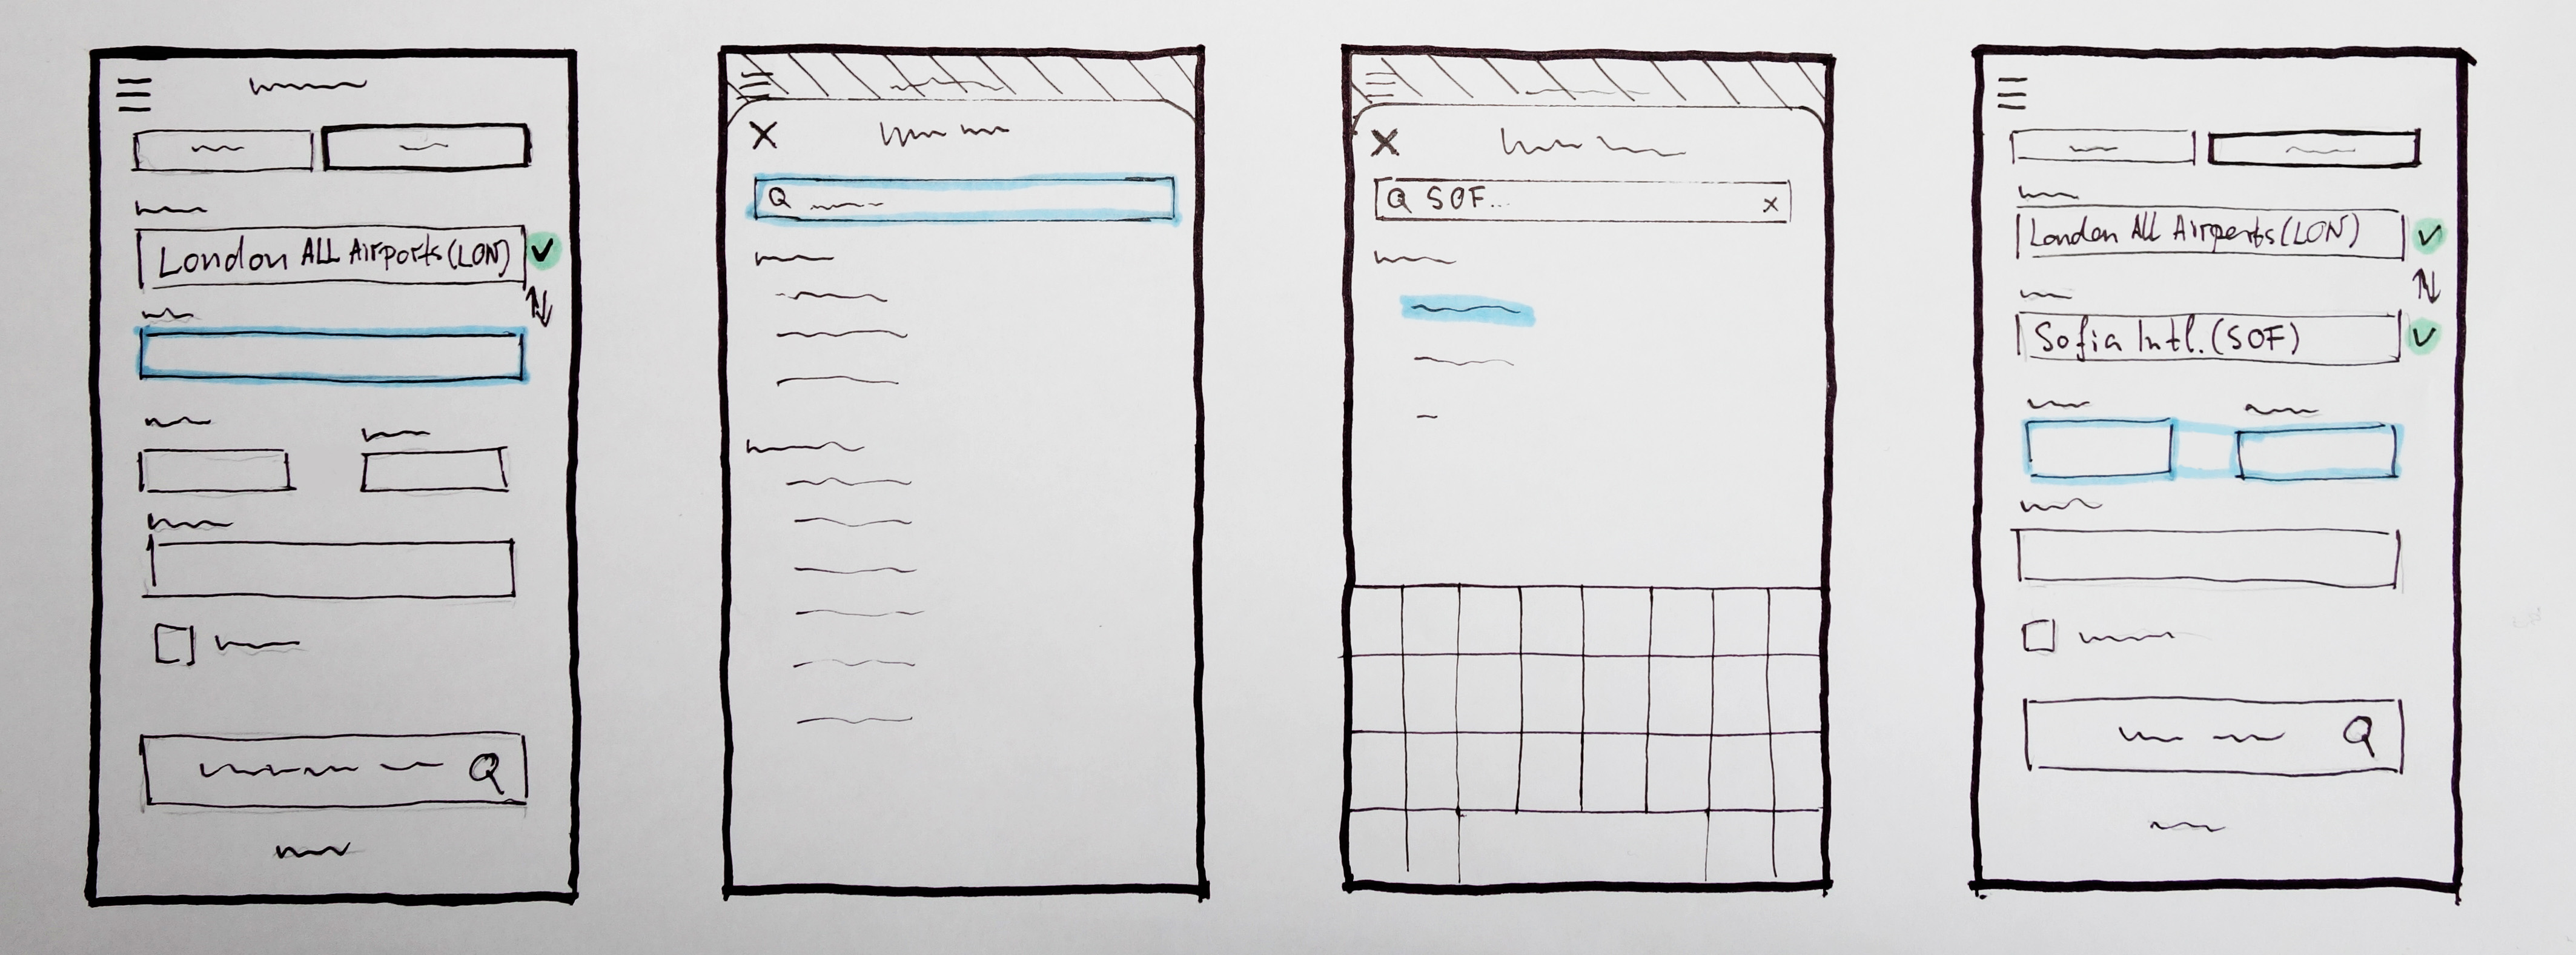 London ALL Airports (LON)
SOF...
London All Airports (LON)
Sofia Intl. (SOF)